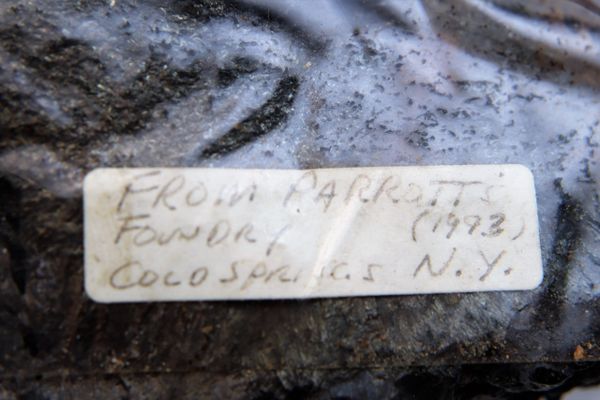 FROM PARROTTS
FOUNDRY (1993)
COLD SPRINGS N.Y.